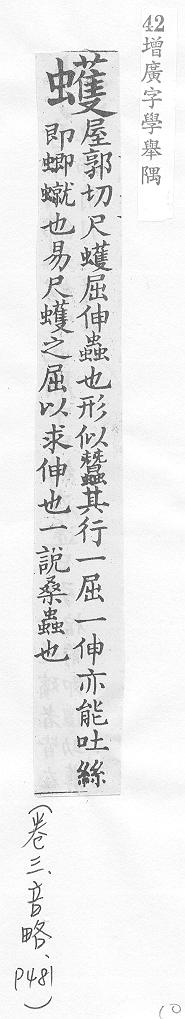 42 增廣字學舉隅
蠖
屋郭切尺蠖屈伸蟲也形似蠶其行一屈一伸亦能吐絲
即蝍䗩也易尺蠖之屈以求伸也一說桑蟲也
(卷三、音略、P481)
10